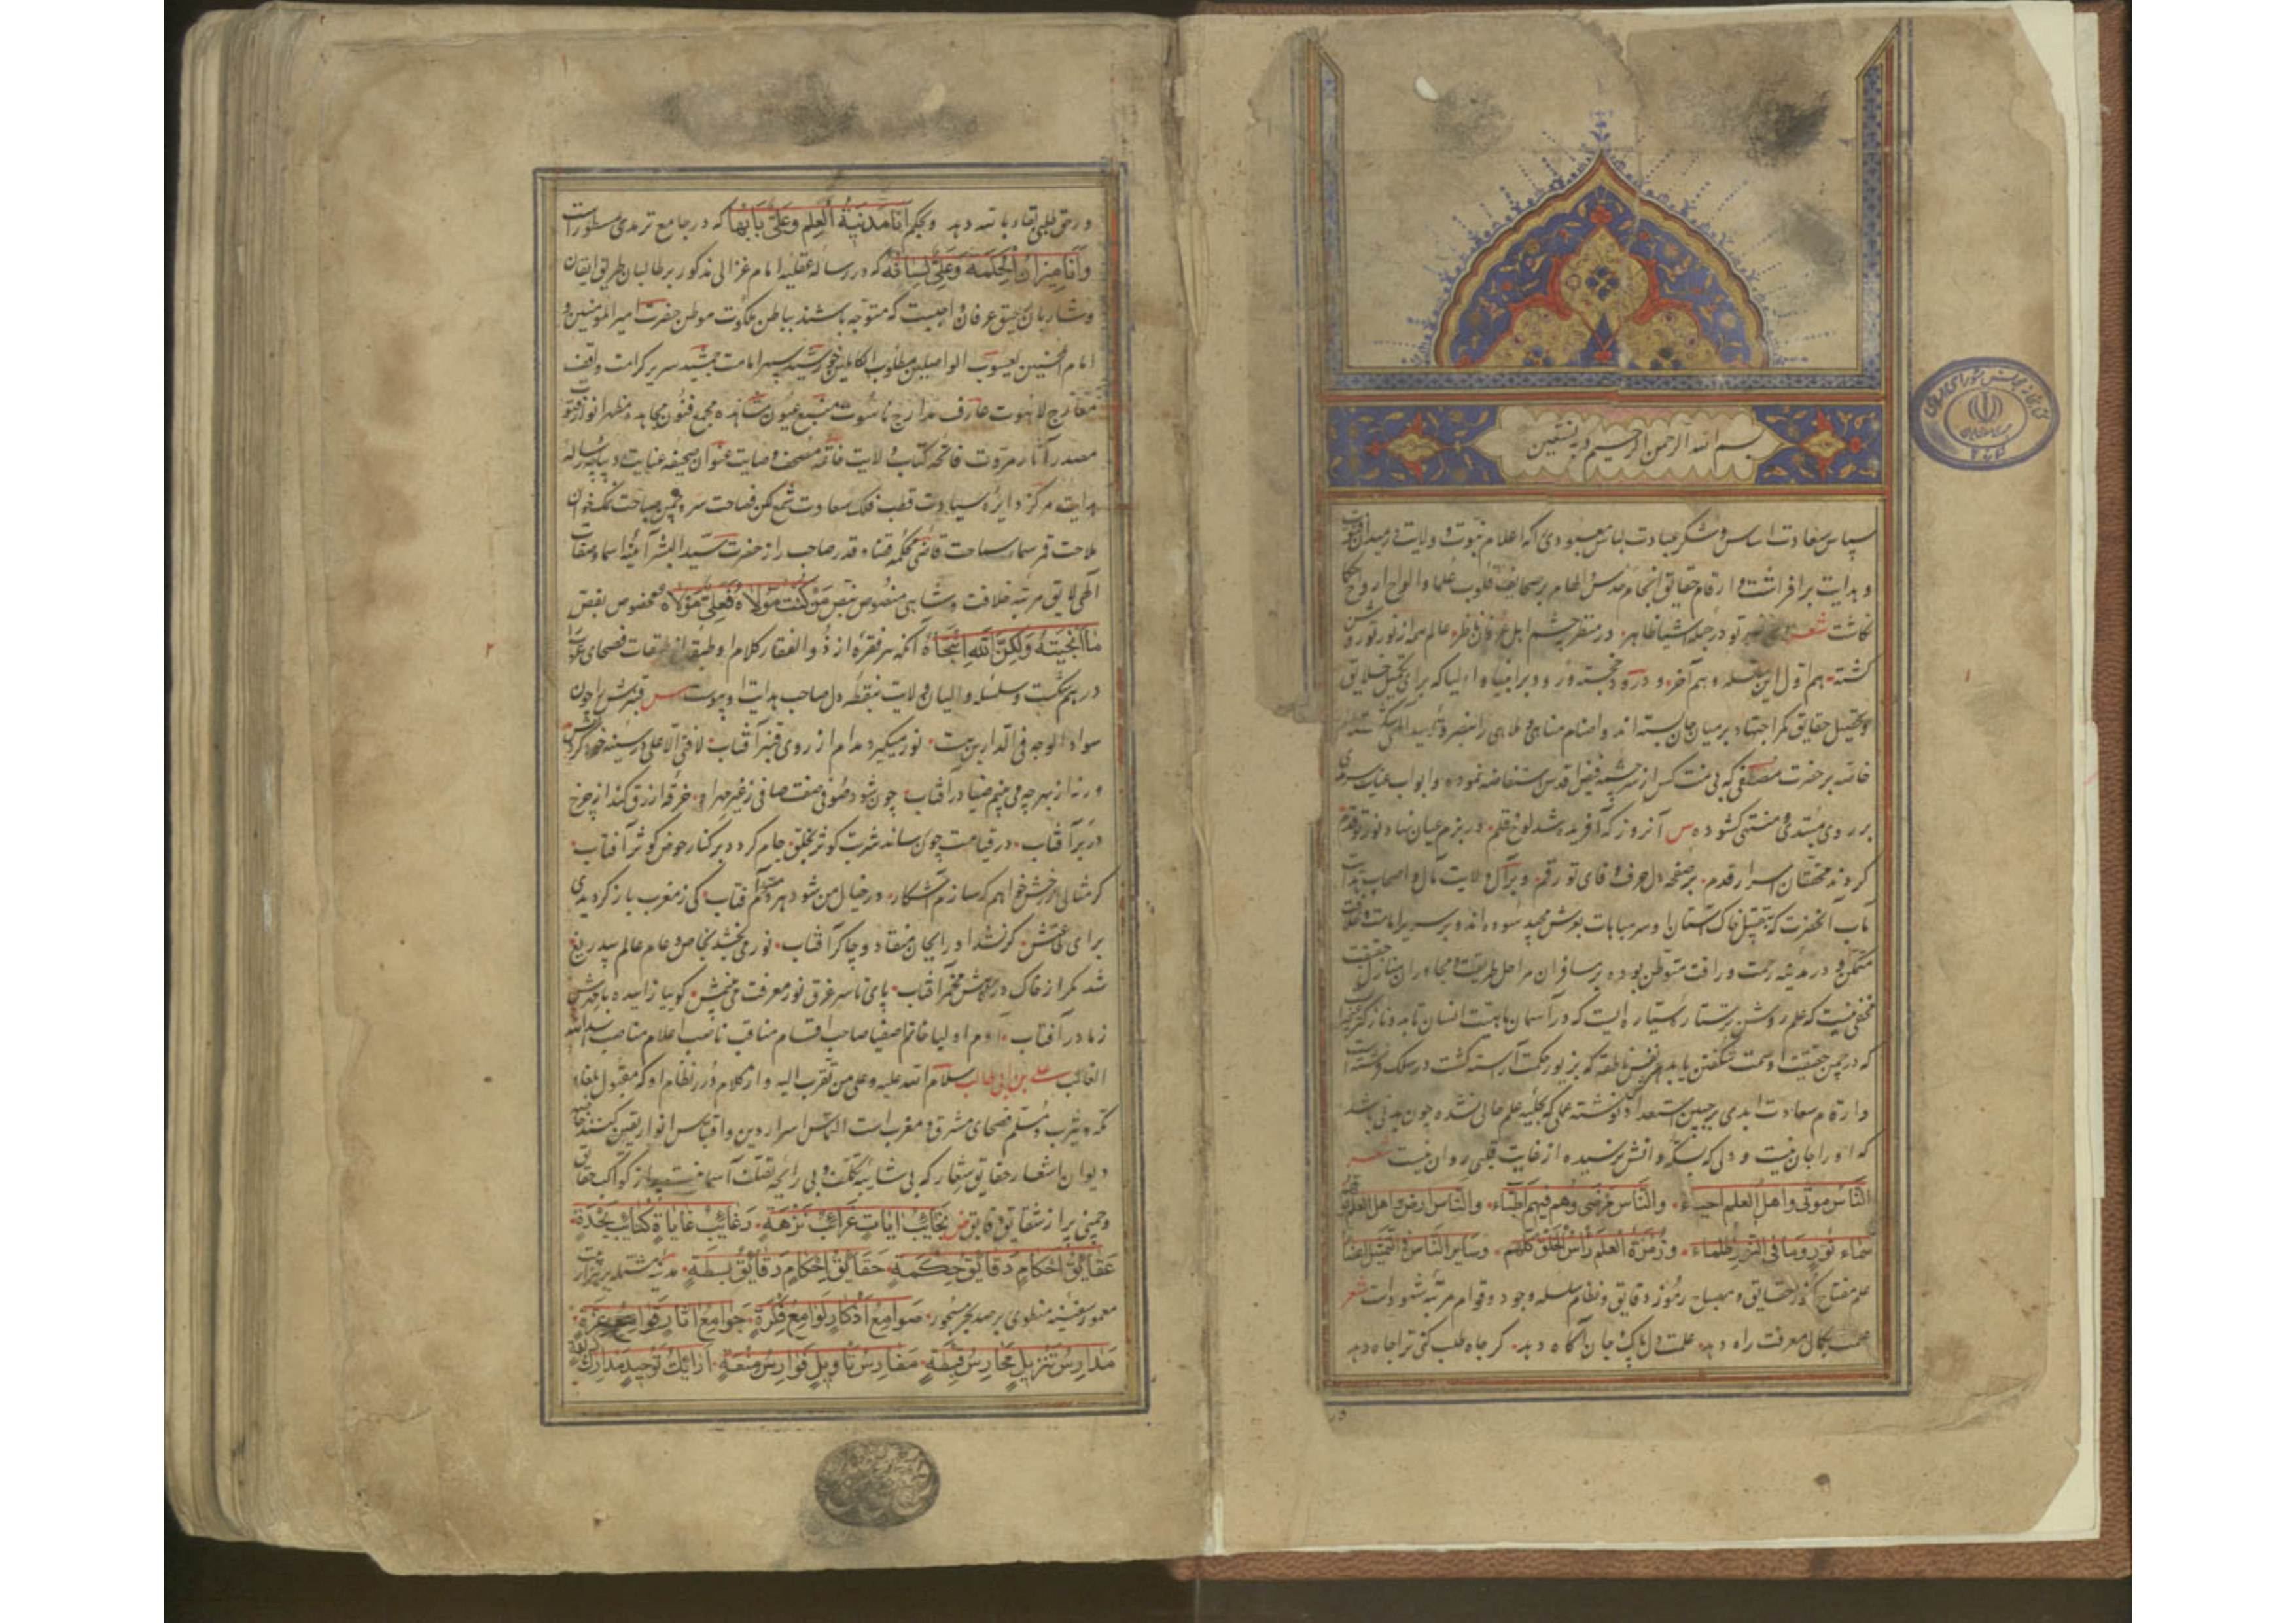 بسم الله الرحمن الرحیم وبه نستعین
سپاس سعادت اساس و شکر عبادت لباس معبودی که اعلام نبوت و ولایت در میدان
و هدایت برافراشت و ارقام حقایق انجام الهام بر صحایف قلوب علما و الواح ارواح
نگاشت شعر تو در جمله اشیا ظاهر در منظر چشم اهل عرفان ناظر عالم همه از نور تو روشن
گشته هم اول این سلسله و هم آخر و درود خجسته ورود بر انبیا و اولیا که برای تکمیل خلایق
و تحصیل حقایق کمر اجتهاد بر میان جان بسته اند و اصنام مناهی و ملاهی را
خاصه بر حضرت مصطفی که بی منت کس از سرچشمه فیض اقدس استفاضه نموده و ابواب عنایت سرمدی
بر روی مبتدی و منتهی گشوده س آنروز که آفریده شد لوح و قلم در بزم عیان نهاد نور تو قدم
کردند محققان اسرار قدم بر صفحه دل حرف وفای تو رقم و بر آل ولایت مآل و اصحاب هدایت
مآب آنحضرت که بتقبیل خاک آستان او سر مباهات بعرش مجید سوده اند و بر سریر امامت و خلافت
متمکن و در مدینه رحمت و رافت متوطن بوده بر مسافران مراحل طریقت و مجاوران منازل حقیقت
مخفی نیست که علم روشن ستاره ایست که در آسمان ماهیت انسان تابد و نازکتر
که در چمن حقیقت او سمت شکفتن یابد هر نفس ناطقه که بزیور حکمت آراسته گشت در سلک
دارقام سعادت ابدی بر جبین استعداد نوشته عملی که بحلیه علم حالی نشده چون بدنی باشد
که او را جان نیست و دلی که بسکه دانش نرسیده از غایت قلبی روان نیست شعر
الناس موتی و اهل العلم احیاء والناس مرضی وهم فیهم اطباء والناس ارض و اهل العلم
سماء نور وما فی النور ظلماء وزمرة العلم رأس الخلق کلهم وسایر الناس فی التمثیل اعضاء
علم مفتاح کنوز حقایق و مصباح رموز دقایق و نظام سلسله وجود و قوام مرتبه شهود است شعر
علمت بکمال معرفت راه دهد علمت دل پاک و جان آگاه دهد گر جاه طلب کنی ترا جاه دهد
ور حق طلبی لقاء بالله دهد و بحکم انا مدینة العلم وعلی بابها که در جامع ترمذی مسطور است
وانا میزان الحکمة وعلی لسانه که در رساله عقلیه امام غزالی مذکور بر طالبان طریق ایقان
و شاربان رحیق عرفان واجبست که متوجه باشند بباطن ملکوت موطن حضرت امیر المومنین و
امام المتقین یعسوب الواصلین مطلوب الکاملین خورشید سپهر امامت جمشید سریر کرامت واقف
معارج لاهوت عارف مدارج ناسوت منبع عیون مشاهده مجمع فنون مجاهده مظهر انوار فتوت
مصدر آثار مروت فاتحه کتاب ولایت خاتمه مصحف وصایت عنوان صحیفه عنایت دیباچه رساله
هدایت مرکز دایره سیادت قطب فلک سعادت شمع لگن فصاحت سرو چمن صباحت نمک خوان
ملاحت قمر سماء سماحت قاضی محکمه قضاء قدر صاحب راز حضرت سید البشر آئینه اسماء و صفات
الهی لایق مرتبه خلافت و شاهی منصوص بنص من کنت مولاه فعلی مولاه مخصوص بفص
ما انتجیته ولکن الله انتجاه آنکه هر فقره از ذو الفقار کلام او طبقه از طبقات فصحای عرب
در هم شکست و سلسله والیان ولایت بنقطه دل صاحب هدایت او پیوست س قنبرش را چون
سواد الوجه فی الدارین هست نور میگیرد مدام از روی قنبر آفتاب لافتی الا علی در سینه خود
ورنه از بهر چه می بینم ضیا در آفتاب چون شود صوفی صفت صافی ز غیر مهر او خرقه ازرق کند از چرخ
در بر آفتاب در قیامت چون رساند شربت کوثر بخلق جام گردد بر کنار حوض کوثر آفتاب
گر مثالی از رخش خواهم که سازم آشکار در خیال من شود هر دم مصور آفتاب کی ز مغرب باز گردیدی
برای طاعتش گر نشدی در ایجان منقاد و چاکر آفتاب نور می بخشد بخاص و عام عالم بیدریغ
شد مگر از خاک درگاهش مخمر آفتاب پای تا سر غرق نور معرفت می بینمش گوییا زاییده با مهرش
ز مادر آفتاب آدم اولیا خاتم اصفیا صاحب اقسام مناقب ناصب اعلام مناصب اسد الله
الغالب علی بن ابی طالب سلام الله علیه وعلی من تقرب الیه و از کلام درر نظام او که مقبول بلغاء
مکه و یثرب و مسلم فصحای مشرق و مغرب است التماس اسرار دین و اقتباس انوار یقین کنند خاصه
دیوان اشعار حقایق شعار که بی شایبه تکلف و بی رایحه تصلف آسمانیست پر از کواکب حقایق
و چمنی پر از شقایق دقایق عجایب ابیات غرائب نزهة رغائب غایات کتائب نجدة
عقائق احکام دقائق حکمة حقائق احکام دقائق بسطة مدینه مشتمله بر هزار بیت
معمور سفینه منطوی بر صد بحر مسجور صوامع اذکار لوامع فکرة جوامع اثار قوامع عزة
مدارس تنزیل محارس غبطة مغارس تاویل فوارس منعة ارائک توحید مدارک
۲
۱